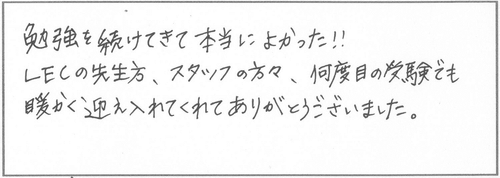 勉強を続けてきて本当によかった!!
LECの先生方、スタッフの方々、何度目の受験でも
暖かく迎え入れてくれてありがとうございました。